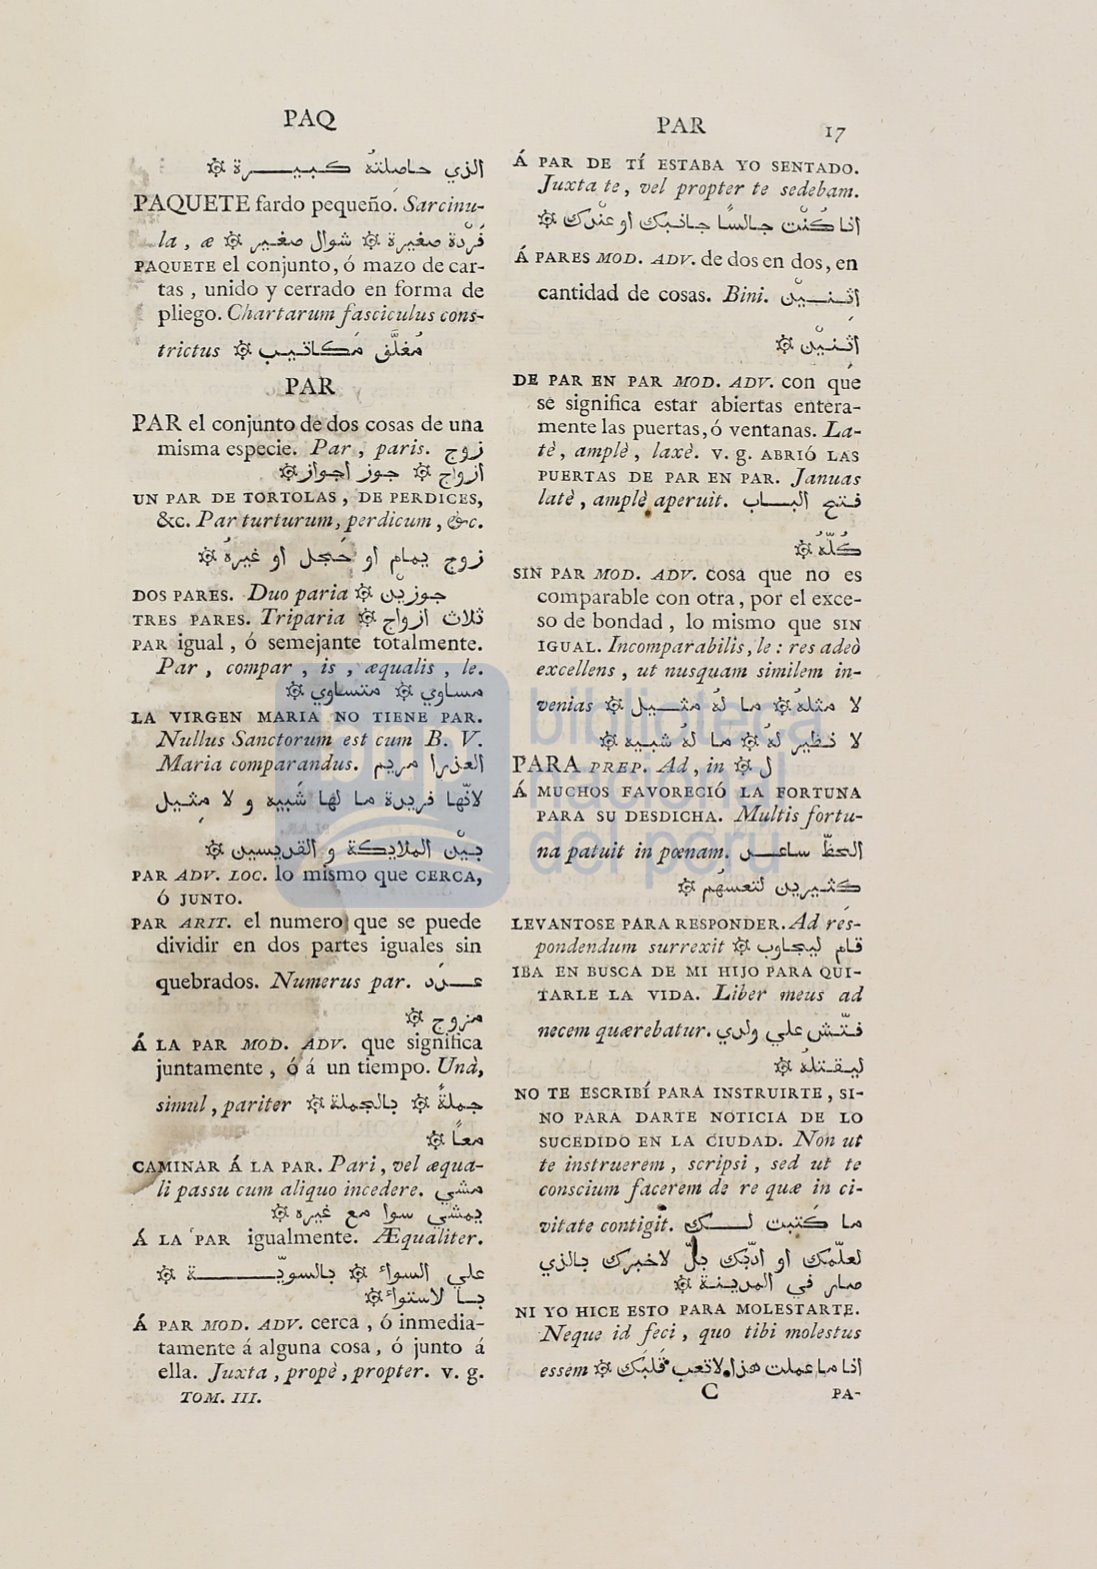 PAQ
الذي حاصلته كبيرة ۞
PAQUETE fardo pequeño. Sarcinu-
la, æ ۞ فردة صغيرة ۞ شوال صغير ۞
PAQUETE el conjunto, ó mazo de car-
tas, unido y cerrado en forma de
pliego. Chartarum fasciculus cons-
trictus ۞ مُغلّق مَكاتيب
PAR
PAR el conjunto de dos cosas de una
misma especie. Par, paris. زوج
ازواج ۞ جوز اجواز ۞
UN PAR DE TORTOLAS, DE PERDICES,
&c. Par turturum, perdicum, &c.
زوج يمام او حَجل او غيرهُ ۞
DOS PARES. Duo paria ۞ جوزيْن
TRES PARES. Triparia ۞ ثلاث ازواج
PAR igual, ó semejante totalmente.
Par, compar, is, æqualis, le.
مساوي ۞ متساوي ۞
LA VIRGEN MARIA NO TIENE PAR.
Nullus Sanctorum est cum B. V.
Maria comparandus. العذرا مريم
لانّها فريدة ما لها شَبيه و لا مثيل
بيْن الملايكة و القديسين ۞
PAR ADV. LOC. lo mismo que CERCA,
Ó JUNTO.
PAR ARIT. el numero que se puede
dividir en dos partes iguales sin
quebrados. Numerus par. عَدد
مزوج ۞
Á LA PAR MOD. ADV. que significa
juntamente, ó á un tiempo. Unà,
simul, pariter ۞ جملةً ۞ بالجملة
معاً ۞
CAMINAR Á LA PAR. Pari, vel æqua-
li passu cum aliquo incedere. مشي
يمشي سوا مع غيره ۞
Á LA PAR igualmente. Æqualiter.
علي السواء ۞ بالسويّة ۞
بالاستواء ۞
Á PAR MOD. ADV. cerca, ó inmedia-
tamente á alguna cosa, ó junto á
ella. Juxta, propè, propter. v. g.
TOM. III.
PAR 17
Á PAR DE TÍ ESTABA YO SENTADO.
Juxta te, vel propter te sedebam.
انا كُنْت جالسًا جانبك او عنْدك ۞
Á PARES MOD. ADV. de dos en dos, en
cantidad de cosas. Bini. اثنيْن
اثنيْن ۞
DE PAR EN PAR MOD. ADV. con que
se significa estar abiertas entera-
mente las puertas, ó ventanas. La-
tè, amplè, laxè. v. g. ABRIÓ LAS
PUERTAS DE PAR EN PAR. Januas
latè, amplè aperuit. فتح الباب
كُلّهُ ۞
SIN PAR MOD. ADV. cosa que no es
comparable con otra, por el exce-
so de bondad, lo mismo que SIN
IGUAL. Incomparabilis, le: res adeò
excellens, ut nusquam similem in-
venias ۞ لا مثلهُ ۞ ما لهُ مثيل
لا نظير لهُ ۞ ما لهُ شبيه ۞
PARA PREP. Ad, in ۞ ل
Á MUCHOS FAVORECIÓ LA FORTUNA
PARA SU DESDICHA. Multis fortu-
na patuit in pœnam. الحظّ ساعد
كثيرين لتعسهُم ۞
LEVANTOSE PARA RESPONDER. Ad res-
pondendum surrexit ۞ قام ليجاوب
IBA EN BUSCA DE MI HIJO PARA QUI-
TARLE LA VIDA. Liber meus ad
necem quærebatur. فتّش علي ولدي
ليقتلهُ ۞
NO TE ESCRIBÍ PARA INSTRUIRTE, SI-
NO PARA DARTE NOTICIA DE LO
SUCEDIDO EN LA CIUDAD. Non ut
te instruerem, scripsi, sed ut te
conscium facerem de re quæ in ci-
vitate contigit. ما كَتبت لك
لعلّمك او ادّبك بلّ لاخبرك بالذي
صار في المدينة ۞
NI YO HICE ESTO PARA MOLESTARTE.
Neque id feci, quo tibi molestus
essem ۞ انا ما عملت هذا لاتعب قَلبَك
C PA-
bnp biblioteca nacional del perú